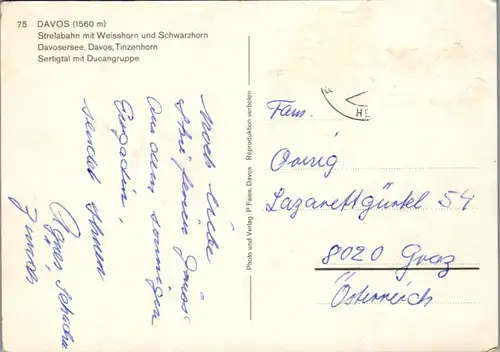 75 DAVOS (1560 m)
Strelabahn mit Weisshorn und Schwarzhorn
Davosersee, Davos, Tinzenhorn
Sertigtal mit Ducangruppe
Noch liebe
Skiferien Grüsse
aus dem sonnigen
Engadin,
sendet Ihnen
Agnes
Photo und Verlag: P. Faiss, Davos Reproduktion verboten
HE
Fam.
Lazarettgürtel 54
8020 Graz
Österreich